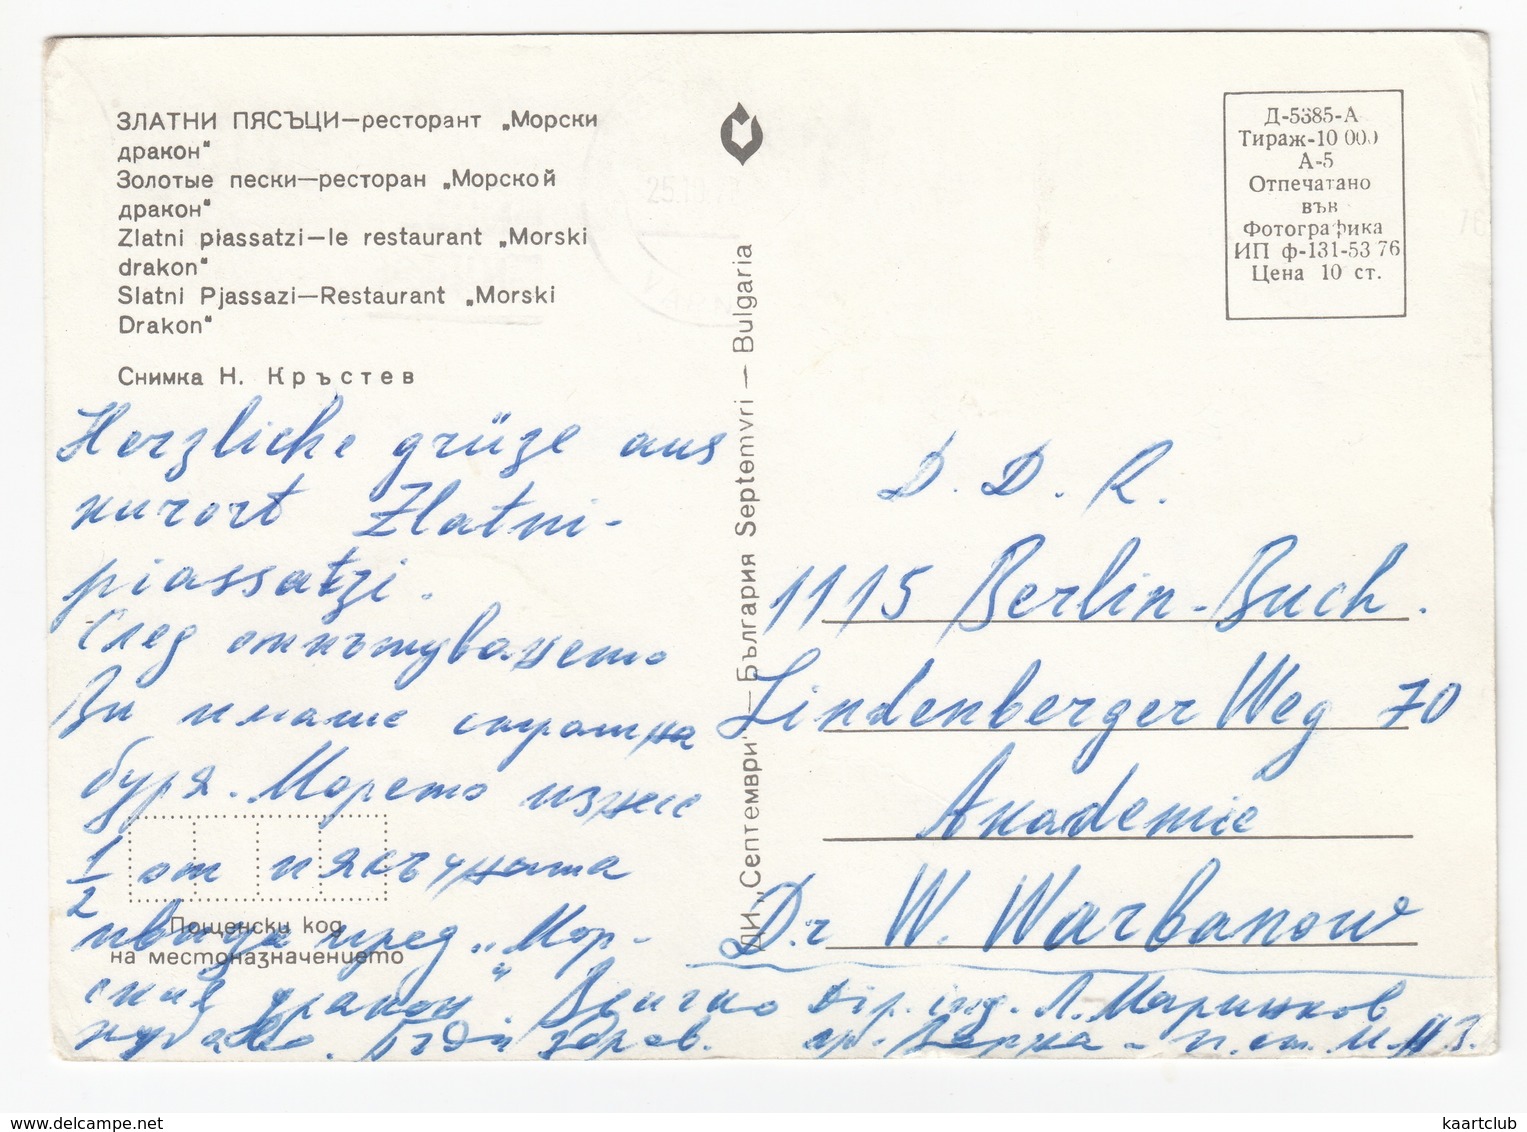 ЗЛАТНИ ПЯСЪЦИ—ресторант „Морски
дракон"
Золотые пески—ресторан „Морской
дракон"
Zlatni piassatzi—le restaurant „Morski
drakon"
Slatni Pjassazi—Restaurant „Morski
Drakon"
Снимка Н. Кръстев
Herzliche grüze aus
kurort Zlatni-
piassatzi.
След отпътуването
Ви имаше страшна
буря. Морето изнесе
1/2 от пясъчната
ивица пред „Мор-
ския дракон". Всичко
хубаво. Бъди здрав.
Пощенски код
на местоназначението
ДИ „Септември" — България Septemvri — Bulgaria
Д-5385-А
Тираж-10 000
А-5
Отпечатано
във
Фотографика
ИП ф-131-53 76
Цена 10 ст.
D. D. R.
1115 Berlin-Buch.
Lindenberger Weg 70
Akademie
Dr W. Warbanow
Dip. ing. Л. Маринков
гр. Варна - п.ст.
kaartclub